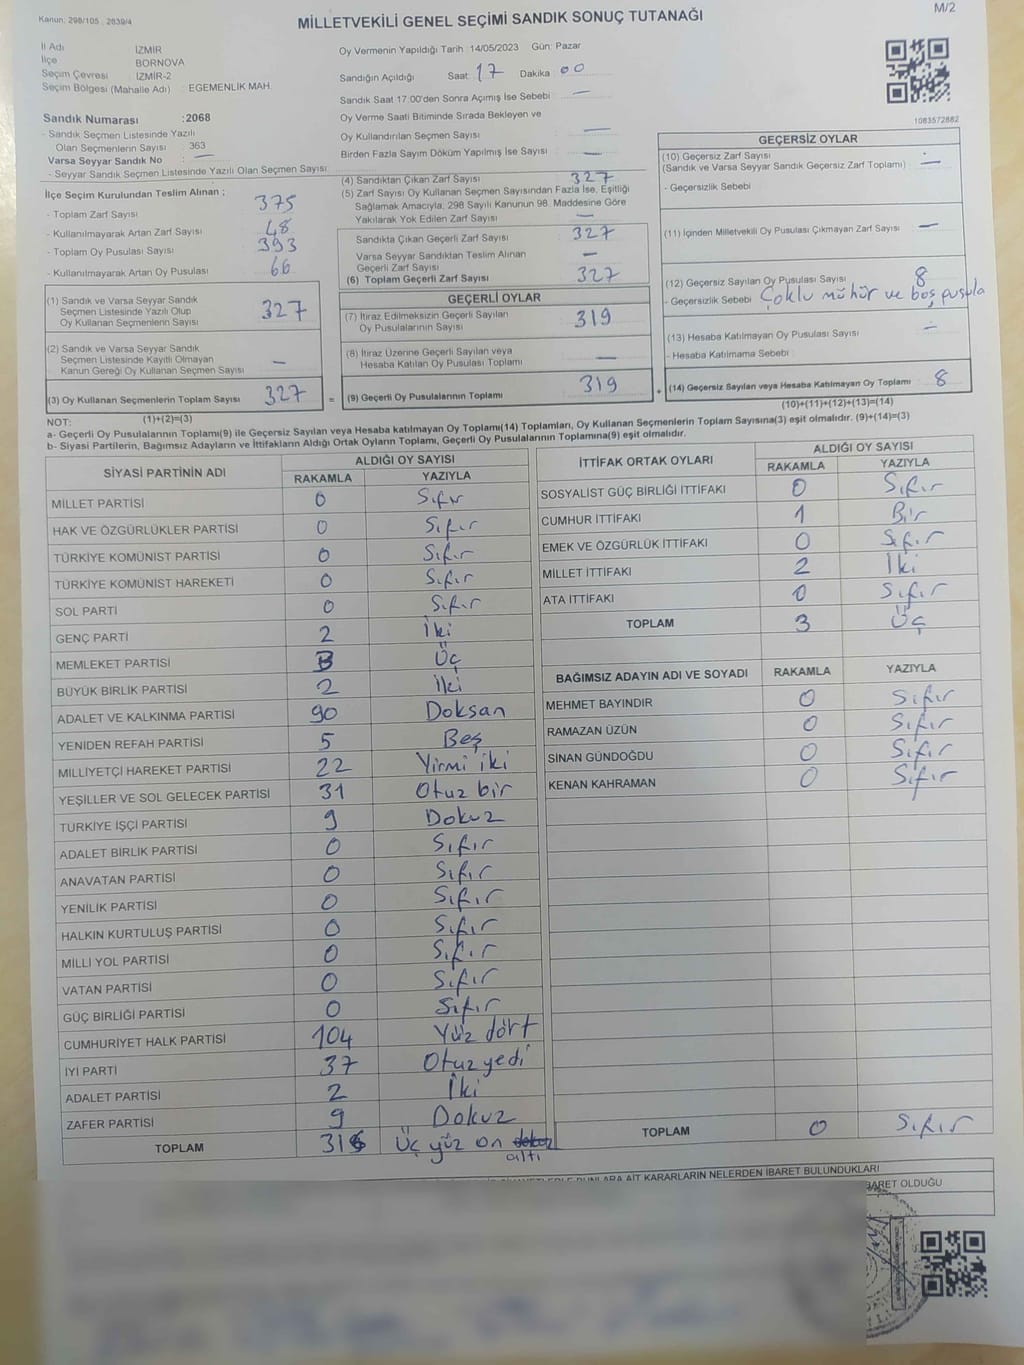 Kanun: 298/105 2839/4
MİLLETVEKİLİ GENEL SEÇİMİ SANDIK SONUÇ TUTANAĞI
M/2
İl Adı İZMİR
İlçe BORNOVA
Seçim Çevresi : İZMİR-2
Seçim Bölgesi (Mahalle Adı) : EGEMENLİK MAH.
Sandık Numarası :2068
- Sandık Seçmen Listesinde Yazılı
Olan Seçmenlerin Sayısı : 363
Varsa Seyyar Sandık No : —
- Seyyar Sandık Seçmen Listesinde Yazılı Olan Seçmen Sayısı
İlçe Seçim Kurulundan Teslim Alınan ;
- Toplam Zarf Sayısı 375
- Kullanılmayarak Artan Zarf Sayısı 48
- Toplam Oy Pusulası Sayısı 393
- Kullanılmayarak Artan Oy Pusulası 66
(1) Sandık ve Varsa Seyyar Sandık
Seçmen Listesinde Yazılı Olup
Oy Kullanan Seçmenlerin Sayısı 327
(2) Sandık ve Varsa Seyyar Sandık
Seçmen Listesinde Kayıtlı Olmayan
Kanun Gereği Oy Kullanan Seçmen Sayısı —
(3) Oy Kullanan Seçmenlerin Toplam Sayısı 327
(1)+(2)=(3)
Oy Vermenin Yapıldığı Tarih :14/05/2023 Gün: Pazar
Sandığın Açıldığı Saat: 17 Dakika : 00
Sandık Saat 17:00'den Sonra Açımış İse Sebebi —
Oy Verme Saati Bitiminde Sırada Bekleyen ve
Oy Kullandırılan Seçmen Sayısı —
Birden Fazla Sayım Döküm Yapılmış İse Sayısı —
(4) Sandıktan Çıkan Zarf Sayısı 327
(5) Zarf Sayısı Oy Kullanan Seçmen Sayısından Fazla İse, Eşitliği
Sağlamak Amacıyla, 298 Sayılı Kanunun 98. Maddesine Göre
Yakılarak Yok Edilen Zarf Sayısı —
Sandıkta Çıkan Geçerli Zarf Sayısı 327
Varsa Seyyar Sandıktan Teslim Alınan
Geçerli Zarf Sayısı —
(6) Toplam Geçerli Zarf Sayısı 327
GEÇERLİ OYLAR
(7) İtiraz Edilmeksizin Geçerli Sayılan
Oy Pusulalarının Sayısı 319
(8) İtiraz Üzerine Geçerli Sayılan veya
Hesaba Katılan Oy Pusulası Toplamı —
= (9) Geçerli Oy Pusulalarının Toplamı 319 +
1083572882
GEÇERSİZ OYLAR
(10) Geçersiz Zarf Sayısı
(Sandık ve Varsa Seyyar Sandık Geçersiz Zarf Toplamı) : —
- Geçersizlik Sebebi
(11) İçinden Milletvekili Oy Pusulası Çıkmayan Zarf Sayısı —
(12) Geçersiz Sayılan Oy Pusulası Sayısı 8
- Geçersizlik Sebebi Çoklu mühür ve boş pusula
(13) Hesaba Katılmayan Oy Pusulası Sayısı —
- Hesaba Katılmama Sebebi
(14) Geçersiz Sayılan veya Hesaba Katılmayan Oy Toplamı 8
(10)+(11)+(12)+(13)=(14)
NOT:
a- Geçerli Oy Pusulalarının Toplamı(9) ile Geçersiz Sayılan veya Hesaba katılmayan Oy Toplamı(14) Toplamları, Oy Kullanan Seçmenlerin Toplam Sayısına(3) eşit olmalıdır. (9)+(14)=(3)
b- Siyasi Partilerin, Bağımsız Adayların ve İttifakların Aldığı Ortak Oyların Toplamı, Geçerli Oy Pusulalarının Toplamına(9) eşit olmalıdır.
SİYASİ PARTİNİN ADI ALDIĞI OY SAYISI
RAKAMLA YAZIYLA
MİLLET PARTİSİ 0 Sıfır
HAK VE ÖZGÜRLÜKLER PARTİSİ 0 Sıfır
TÜRKİYE KOMÜNİST PARTİSİ 0 Sıfır
TÜRKİYE KOMÜNİST HAREKETİ 0 Sıfır
SOL PARTİ 0 Sıfır
GENÇ PARTİ 2 İki
MEMLEKET PARTİSİ 3 Üç
BÜYÜK BİRLİK PARTİSİ 2 İki
ADALET VE KALKINMA PARTİSİ 90 Doksan
YENİDEN REFAH PARTİSİ 5 Beş
MİLLİYETÇİ HAREKET PARTİSİ 22 Yirmi iki
YEŞİLLER VE SOL GELECEK PARTİSİ 31 Otuz bir
TÜRKİYE İŞÇİ PARTİSİ 9 Dokuz
ADALET BİRLİK PARTİSİ 0 Sıfır
ANAVATAN PARTİSİ 0 Sıfır
YENİLİK PARTİSİ 0 Sıfır
HALKIN KURTULUŞ PARTİSİ 0 Sıfır
MİLLİ YOL PARTİSİ 0 Sıfır
VATAN PARTİSİ 0 Sıfır
GÜÇ BİRLİĞİ PARTİSİ 0 Sıfır
CUMHURİYET HALK PARTİSİ 104 Yüz dört
İYİ PARTİ 37 Otuz yedi
ADALET PARTİSİ 2 İki
ZAFER PARTİSİ 9 Dokuz
TOPLAM 316 Üç yüz on dokuz altı
İTTİFAK ORTAK OYLARI ALDIĞI OY SAYISI
RAKAMLA YAZIYLA
SOSYALİST GÜÇ BİRLİĞİ İTTİFAKI 0 Sıfır
CUMHUR İTTİFAKI 1 Bir
EMEK VE ÖZGÜRLÜK İTTİFAKI 0 Sıfır
MİLLET İTTİFAKI 2 İki
ATA İTTİFAKI 0 Sıfır
TOPLAM 3 Üç
BAĞIMSIZ ADAYIN ADI VE SOYADI RAKAMLA YAZIYLA
MEHMET BAYINDIR 0 Sıfır
RAMAZAN ÜZÜN 0 Sıfır
SİNAN GÜNDOĞDU 0 Sıfır
KENAN KAHRAMAN 0 Sıfır
TOPLAM 0 Sıfır
BUNLARA AİT KARARLARIN NELERDEN İBARET BULUNDUKLARI
OLDUĞU